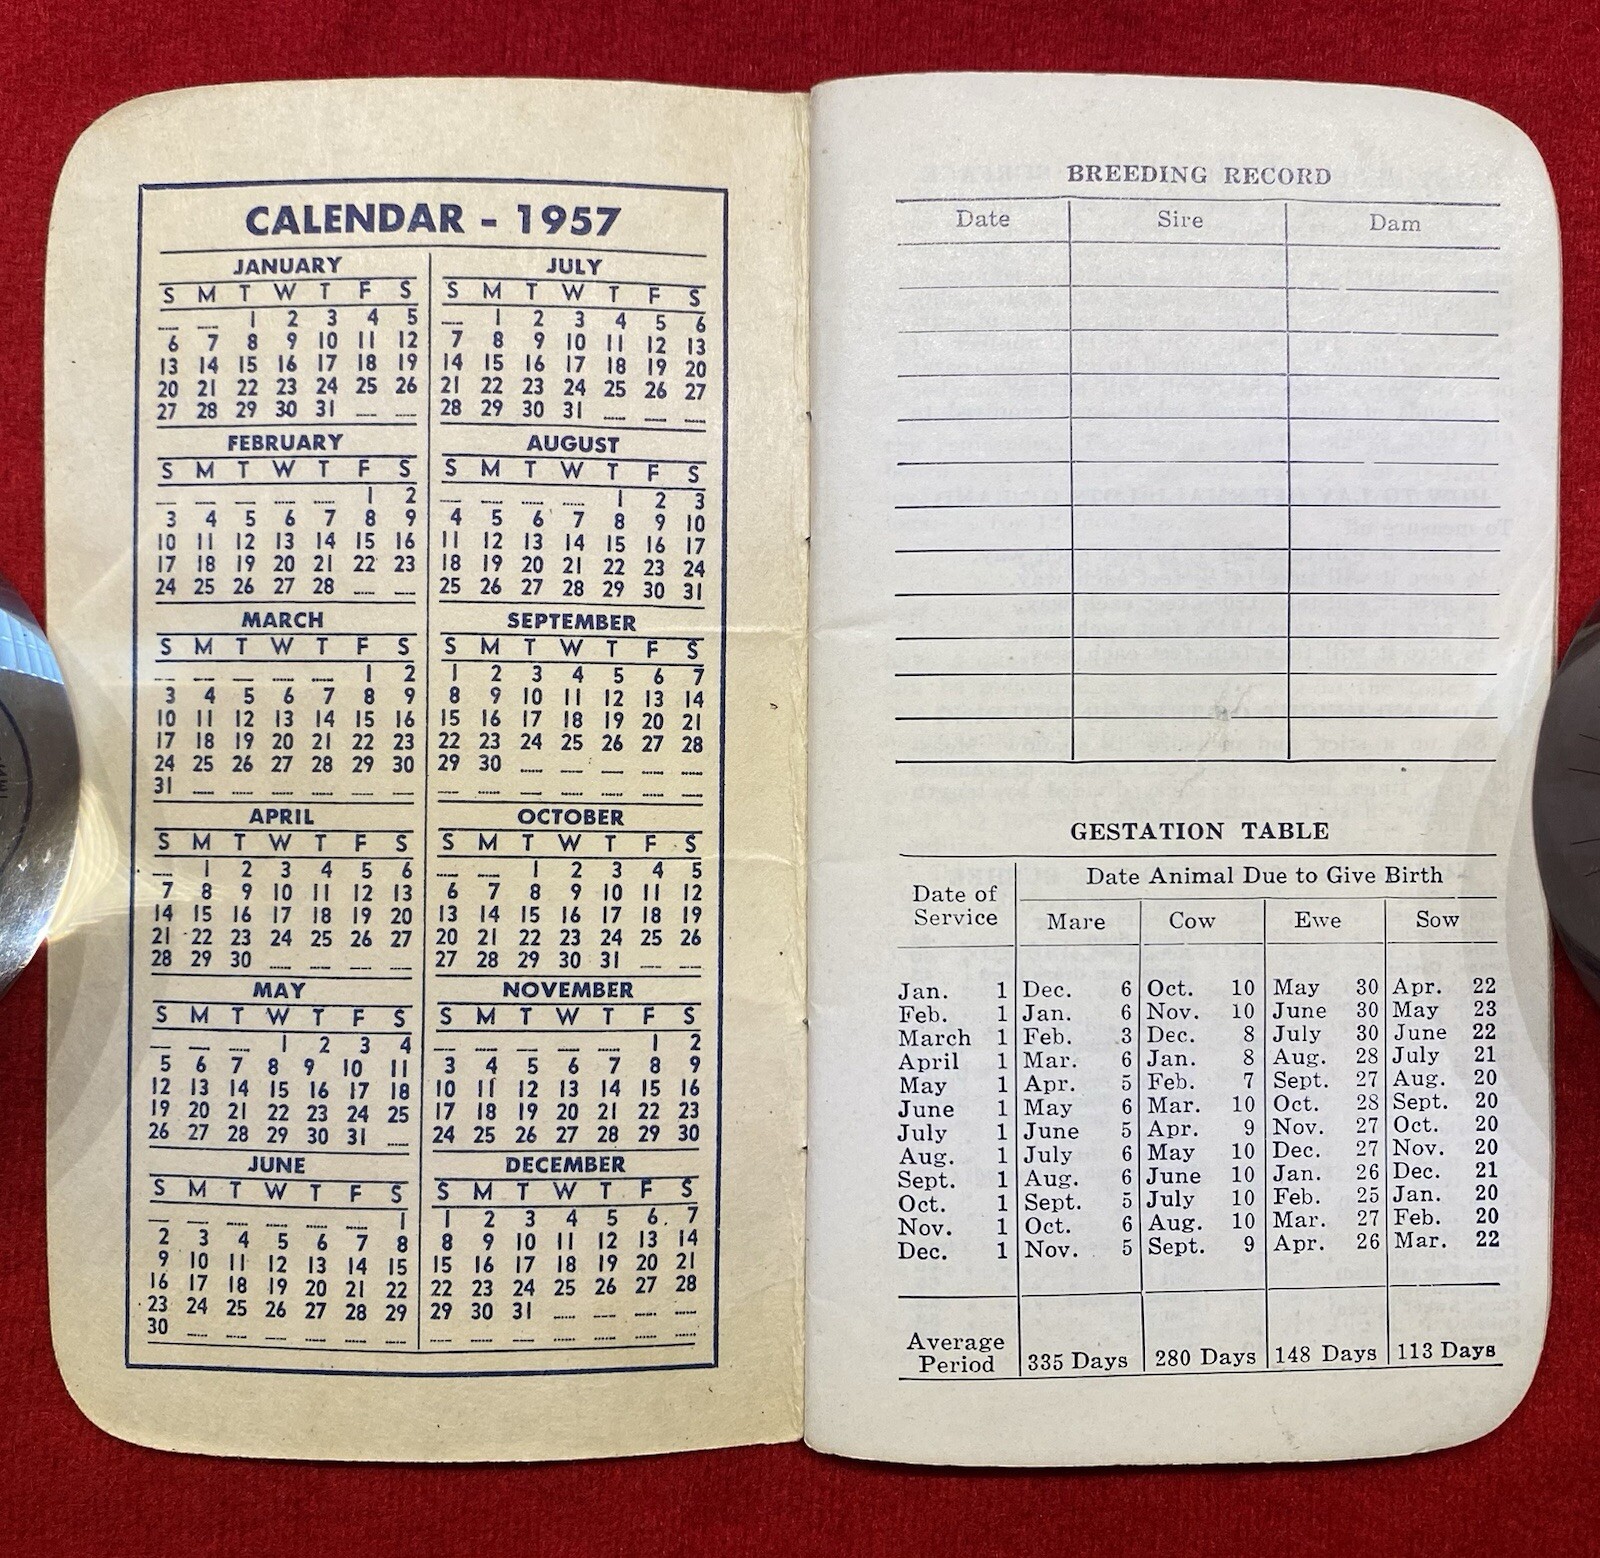 CALENDAR - 1957
JANUARY
S M T W T F S
1 2 3 4 5
6 7 8 9 10 11 12
13 14 15 16 17 18 19
20 21 22 23 24 25 26
27 28 29 30 31
FEBRUARY
S M T W T F S
1 2
3 4 5 6 7 8 9
10 11 12 13 14 15 16
17 18 19 20 21 22 23
24 25 26 27 28
MARCH
S M T W T F S
1 2
3 4 5 6 7 8 9
10 11 12 13 14 15 16
17 18 19 20 21 22 23
24 25 26 27 28 29 30
31
APRIL
S M T W T F S
1 2 3 4 5 6
7 8 9 10 11 12 13
14 15 16 17 18 19 20
21 22 23 24 25 26 27
28 29 30
MAY
S M T W T F S
1 2 3 4
5 6 7 8 9 10 11
12 13 14 15 16 17 18
19 20 21 22 23 24 25
26 27 28 29 30 31
JUNE
S M T W T F S
1
2 3 4 5 6 7 8
9 10 11 12 13 14 15
16 17 18 19 20 21 22
23 24 25 26 27 28 29
30
JULY
S M T W T F S
1 2 3 4 5 6
7 8 9 10 11 12 13
14 15 16 17 18 19 20
21 22 23 24 25 26 27
28 29 30 31
AUGUST
S M T W T F S
1 2 3
4 5 6 7 8 9 10
11 12 13 14 15 16 17
18 19 20 21 22 23 24
25 26 27 28 29 30 31
SEPTEMBER
S M T W T F S
1 2 3 4 5 6 7
8 9 10 11 12 13 14
15 16 17 18 19 20 21
22 23 24 25 26 27 28
29 30
OCTOBER
S M T W T F S
1 2 3 4 5
6 7 8 9 10 11 12
13 14 15 16 17 18 19
20 21 22 23 24 25 26
27 28 29 30 31
NOVEMBER
S M T W T F S
1 2
3 4 5 6 7 8 9
10 11 12 13 14 15 16
17 18 19 20 21 22 23
24 25 26 27 28 29 30
DECEMBER
S M T W T F S
1 2 3 4 5 6 7
8 9 10 11 12 13 14
15 16 17 18 19 20 21
22 23 24 25 26 27 28
29 30 31
BREEDING RECORD
Date Sire Dam
GESTATION TABLE
Date of Service Date Animal Due to Give Birth
Mare Cow Ewe Sow
Jan. 1 Dec. 6 Oct. 10 May 30 Apr. 22
Feb. 1 Jan. 6 Nov. 10 June 30 May 23
March 1 Feb. 3 Dec. 8 July 30 June 22
April 1 Mar. 6 Jan. 8 Aug. 28 July 21
May 1 Apr. 5 Feb. 7 Sept. 27 Aug. 20
June 1 May 6 Mar. 10 Oct. 28 Sept. 20
July 1 June 5 Apr. 9 Nov. 27 Oct. 20
Aug. 1 July 6 May 10 Dec. 27 Nov. 20
Sept. 1 Aug. 6 June 10 Jan. 26 Dec. 21
Oct. 1 Sept. 5 July 10 Feb. 25 Jan. 20
Nov. 1 Oct. 6 Aug. 10 Mar. 27 Feb. 20
Dec. 1 Nov. 5 Sept. 9 Apr. 26 Mar. 22
Average Period 335 Days 280 Days 148 Days 113 Days